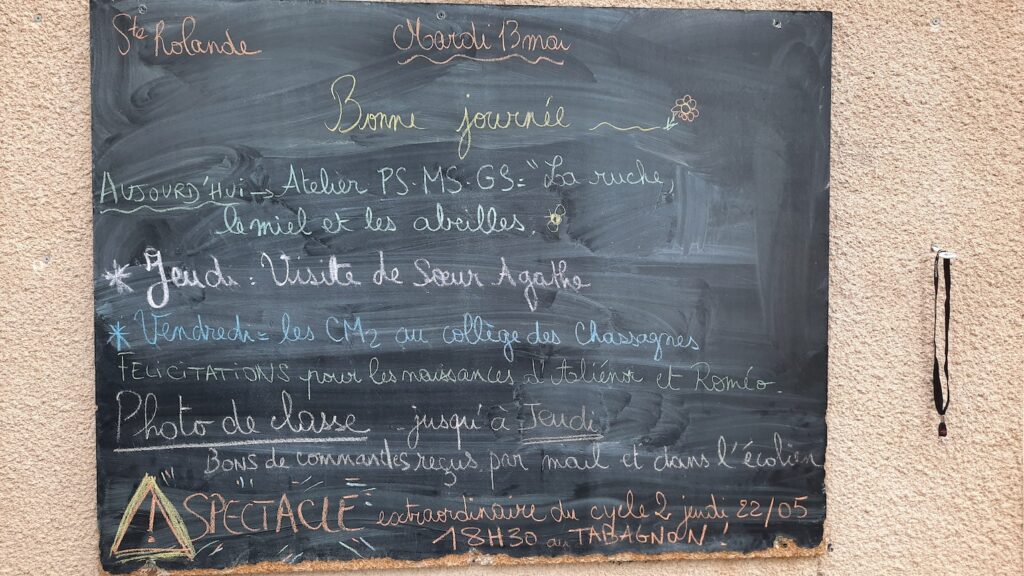 Ste Rolande
Mardi 13 mai
Bonne journée
AUJOURD'HUI → Atelier PS-MS-GS = "La ruche,
le miel et les abeilles.
* Jeudi : Visite de Sœur Agathe
* Vendredi = les CM2 au collège des Chassagnes
FELICITATIONS pour les naissances d'Aliénor et Roméo
Photo de classe - jusqu'à Jeudi
BONS de commandes reçus par mail et dans l'écolien
! SPECTACLE extraordinaire du cycle 2 jeudi 22/05
18H30 au TABAGNON !